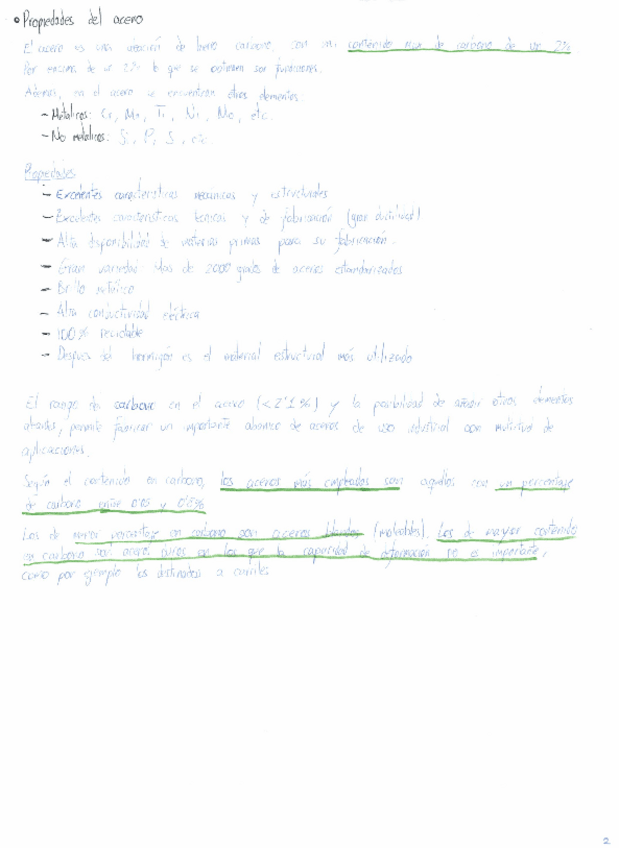 • Propiedades del acero
El acero es una aleación de hierro carbono, con un contenido máx de carbono de un 2%.
Por encima de un 2% lo que se obtienen son fundiciones.
Además, en el acero se encuentran otros elementos:
- Metálicos: Cr, Mn, Ti, Ni, Mo, etc.
- No metálicos: Si, P, S, etc.
Propiedades
- Excelentes características mecánicas y estructurales
- Excelentes características técnicas y de fabricación (gran ductilidad)
- Alta disponibilidad de materias primas para su fabricación.
- Gran variedad: Más de 2000 grados de aceros estandarizados
- Brillo metálico
- Alta conductividad eléctrica
- 100% reciclable
- Después del hormigón es el material estructural más utilizado
El rango de carbono en el acero (<2'1%) y la posibilidad de añadir otros elementos
aleantes, permite fabricar un importante abanico de aceros de uso industrial con multitud de
aplicaciones.
Según el contenido en carbono, los aceros más empleados son aquellos con un porcentaje
de carbono entre 0'05 y
Los de menor porcentaje en carbono son aceros blandos (moldeables). Los de mayor contenido
en carbono son aceros duros en los que la capacidad de deformación no es importante,
como por ejemplo los destinados a carriles
2